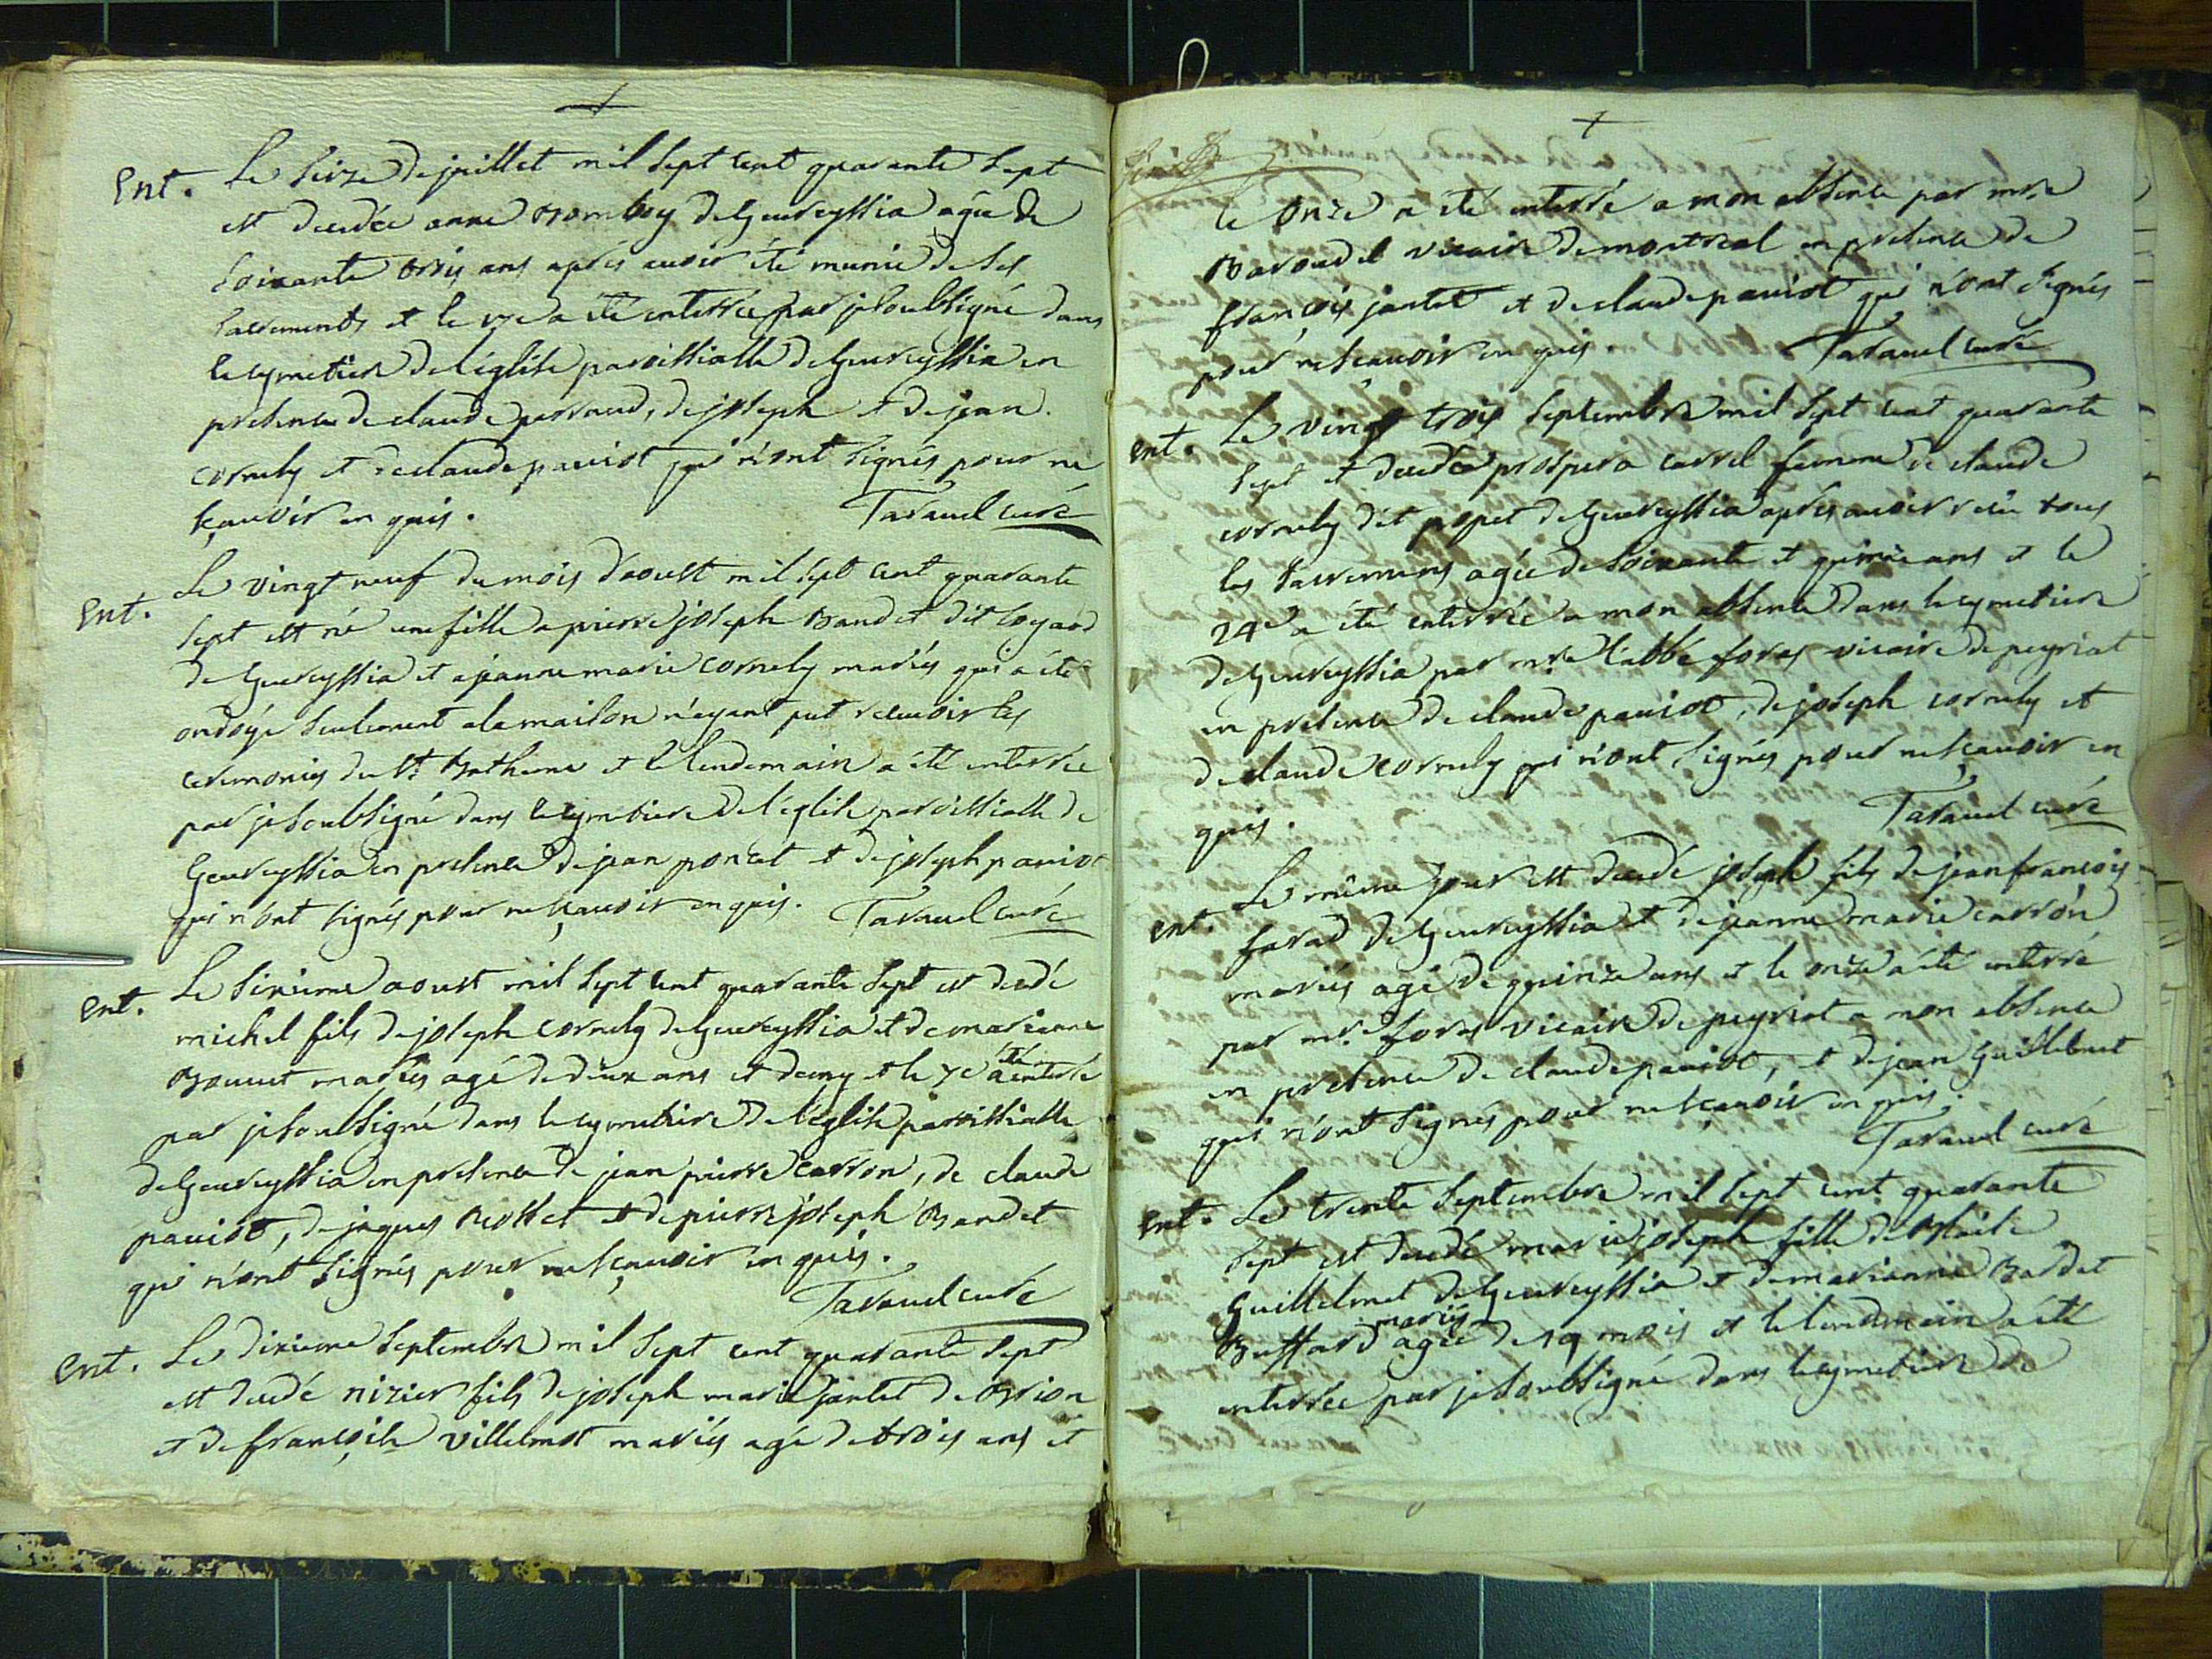 Ent. Le seize de juillet mil sept cent quarante sept
est decedée anne bomboy de Geureyssia agée de
soixante trois ans après avoir été munie de ses
sacrements et le 17e a été enterrée par je soubsigné dans
le cymetiere de l'église paroissialle de Geureyssia en
presence de claude perraud, de joseph et de jean
cornely et de claude paviot qui n'ont signés pour ne
sçavoir en quis. Tavauel curé
Ent. Le vingt neuf du mois d'aoust mil sept cent quarante
sept est né une fille a pierre joseph Bandet dit
de Geureyssia et a jeanne marie cornely mariés qui a été
ondoýe seulement a la maison n'ayant put recevoir les
ceremonies du St. Batheme et le lendemain a été enterrée
par je soubsigné dans le cymetiere de l'eglise paroissialle de
Geureyssia en presence de jean poncet et de joseph paviot
qui n'ont signés pour ne sçavoir en quis. Tavauel curé
Ent. Le sixieme aoust mil sept cent quarante sept est decedé
michel fils de joseph cornely de Geureyssia et de marianne
Bouvet mariés agé de deux ans et demy et le 7e a été enterré
par je soubsigné dans le cymetiere de l'eglise paroissialle
de Geureyssia en presence de jean pierre carron, de claude
paviot, de jaques Rosset et de pierre joseph Bandet
qui n'ont signés pour ne sçavoir en quis.
Tavauel curé
Ent. Le dixieme septembre mil sept cent quarante sept
est decedé nizier fils de joseph marie jantet de Brion
et de françoise villelmot mariés agé de trois ans et
le onze a été enterré a mon absence par mre
Baroudel vicaire de montreal en presence de
françois jantet et de claude paviot qui n'ont signés
pour ne sçavoir en quis. Tavauel curé
Ent. Le vingt trois septembre mil sept cent quarante
sept est decedée prospera carrel femme de claude
cornely dit popet de Geureyssia après avoir reçu tous
les sacremens agée de soixante et quinze ans et le
24e a été enterrée a mon absence dans le cymetiere
de Geureyssia par mre l'abbé foras vicaire de peyriat
en presence de claude paviot, de joseph cornely et
de claude cornely qui n'ont signés pour ne sçavoir en
quis. Tavauel curé
Ent. Le même jour est decedé joseph fils de jean françois
favad de Geureyssia et de jeanne marie carron
mariés agé de quinze ans et le onze a été enterré
par mr. foras vicaire de peyriat a mon absence
en presence de claude paviot, et de jean Guillelmet
qui n'ont signés pour ne sçavoir en quis.
Tavauel curé
Ent. Le trente septembre mil sept cent quarante
sept est decedé marie joseph fille de Blaise
Guillelmet de Geureyssia et de marianne Bardet
Buffard mariés agée de 19 mois et le lendemain a été
enterrée par je soubsigné dans le cymetiere de